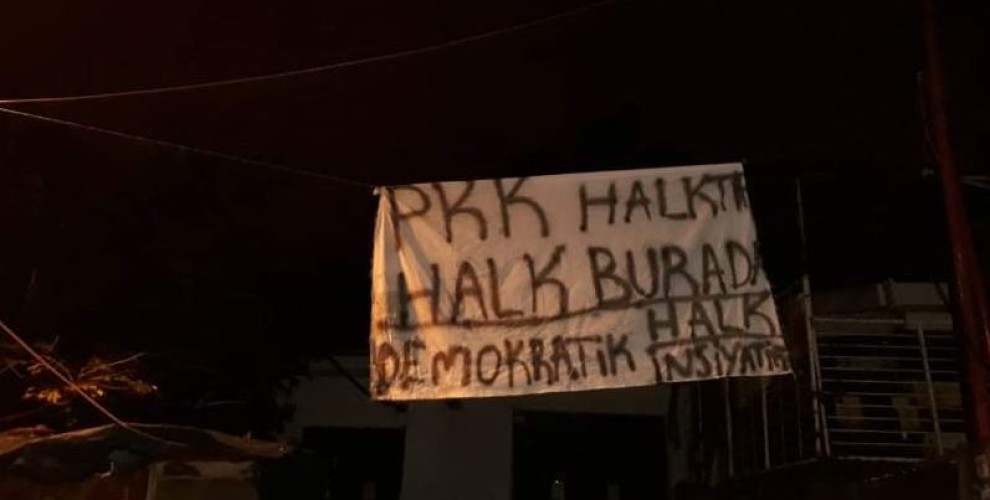 PKK HALKTIR
HALK BURADA
DEMOKRATİK HALK
İNSİYATİFİ